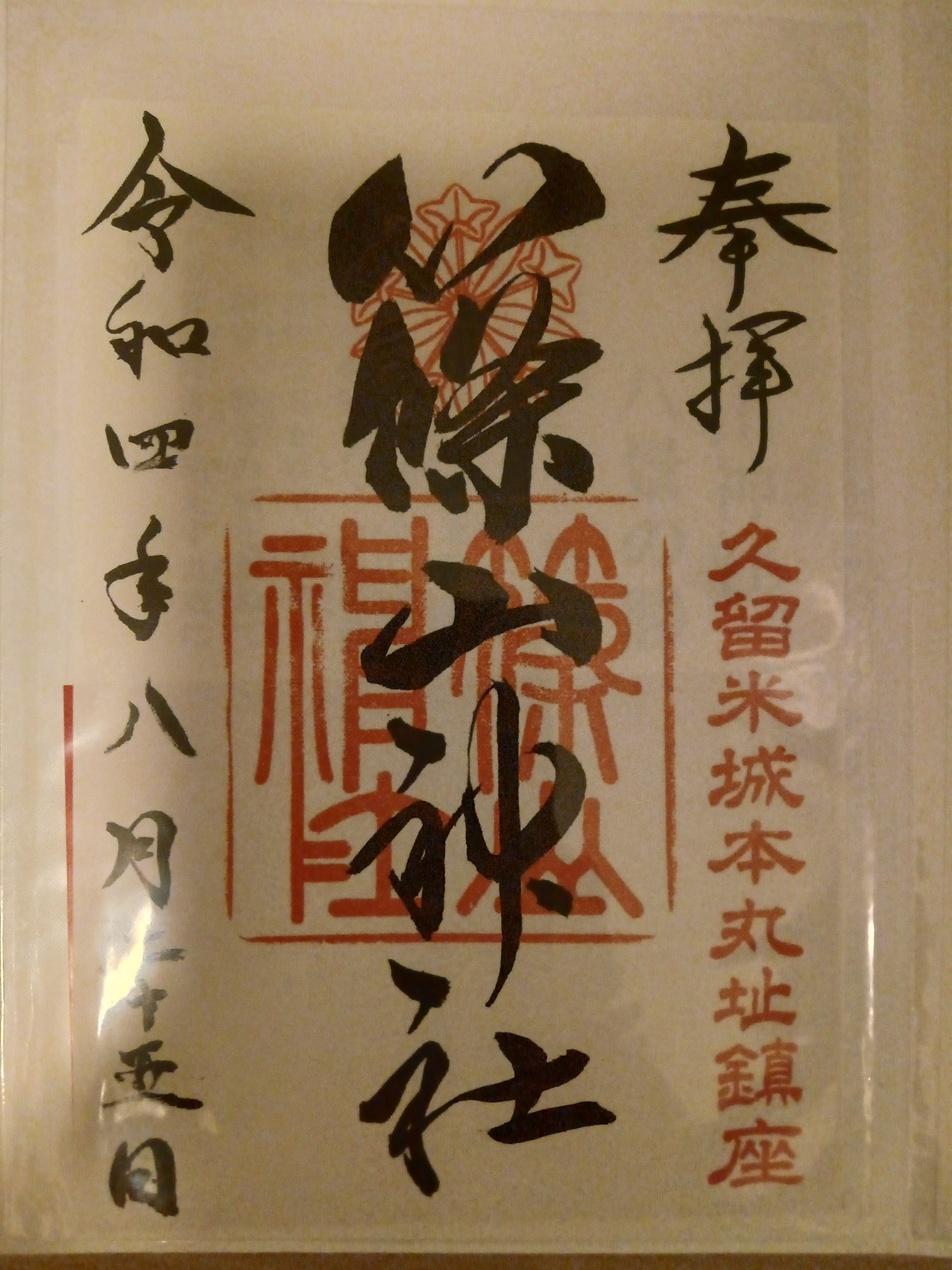 奉拝
久留米城本丸址鎮座
篠山神社
篠山
神社
令和四年八月二十五日